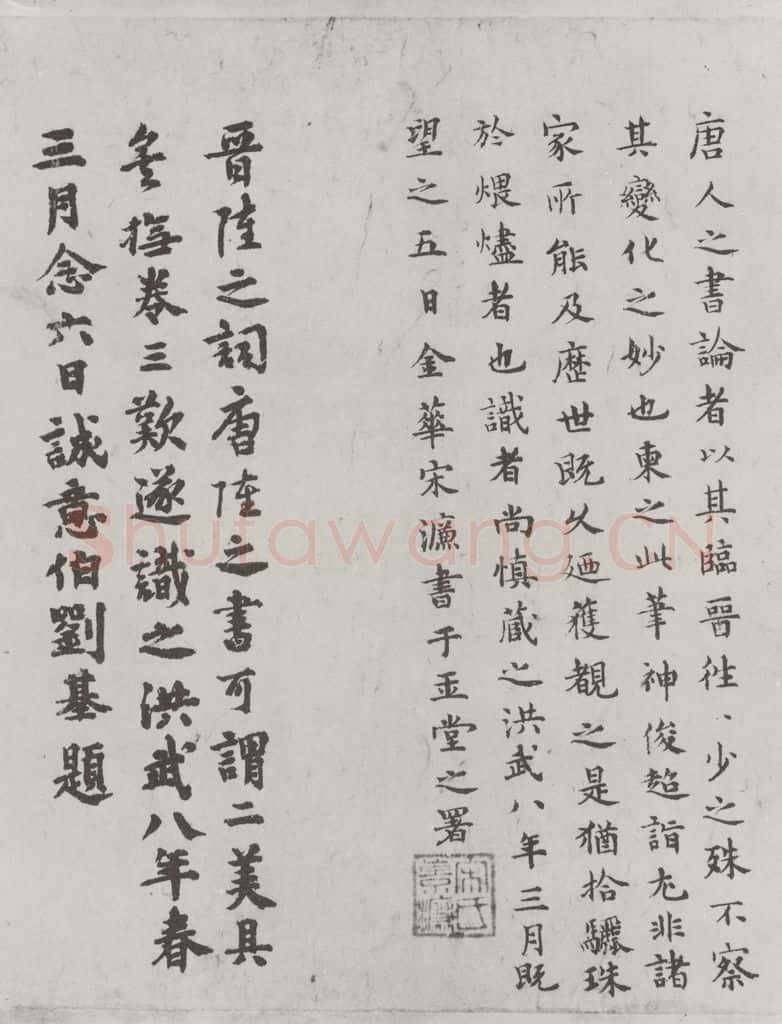 唐人之書論者以其臨晉往、少之殊不察
其變化之妙也柬之此筆神俊超詣尤非諸
家所能及歷世既久廼獲覩之是猶拾驪珠
於煨燼者也識者尚慎藏之洪武八年三月既
望之五日金華宋濂書于玉堂之署
宋氏景濂
晉陸之詞唐陸之書可謂二美具
矣撫卷三歎遂識之洪武八年春
三月念六日誠意伯劉基題
Shufawang.CN